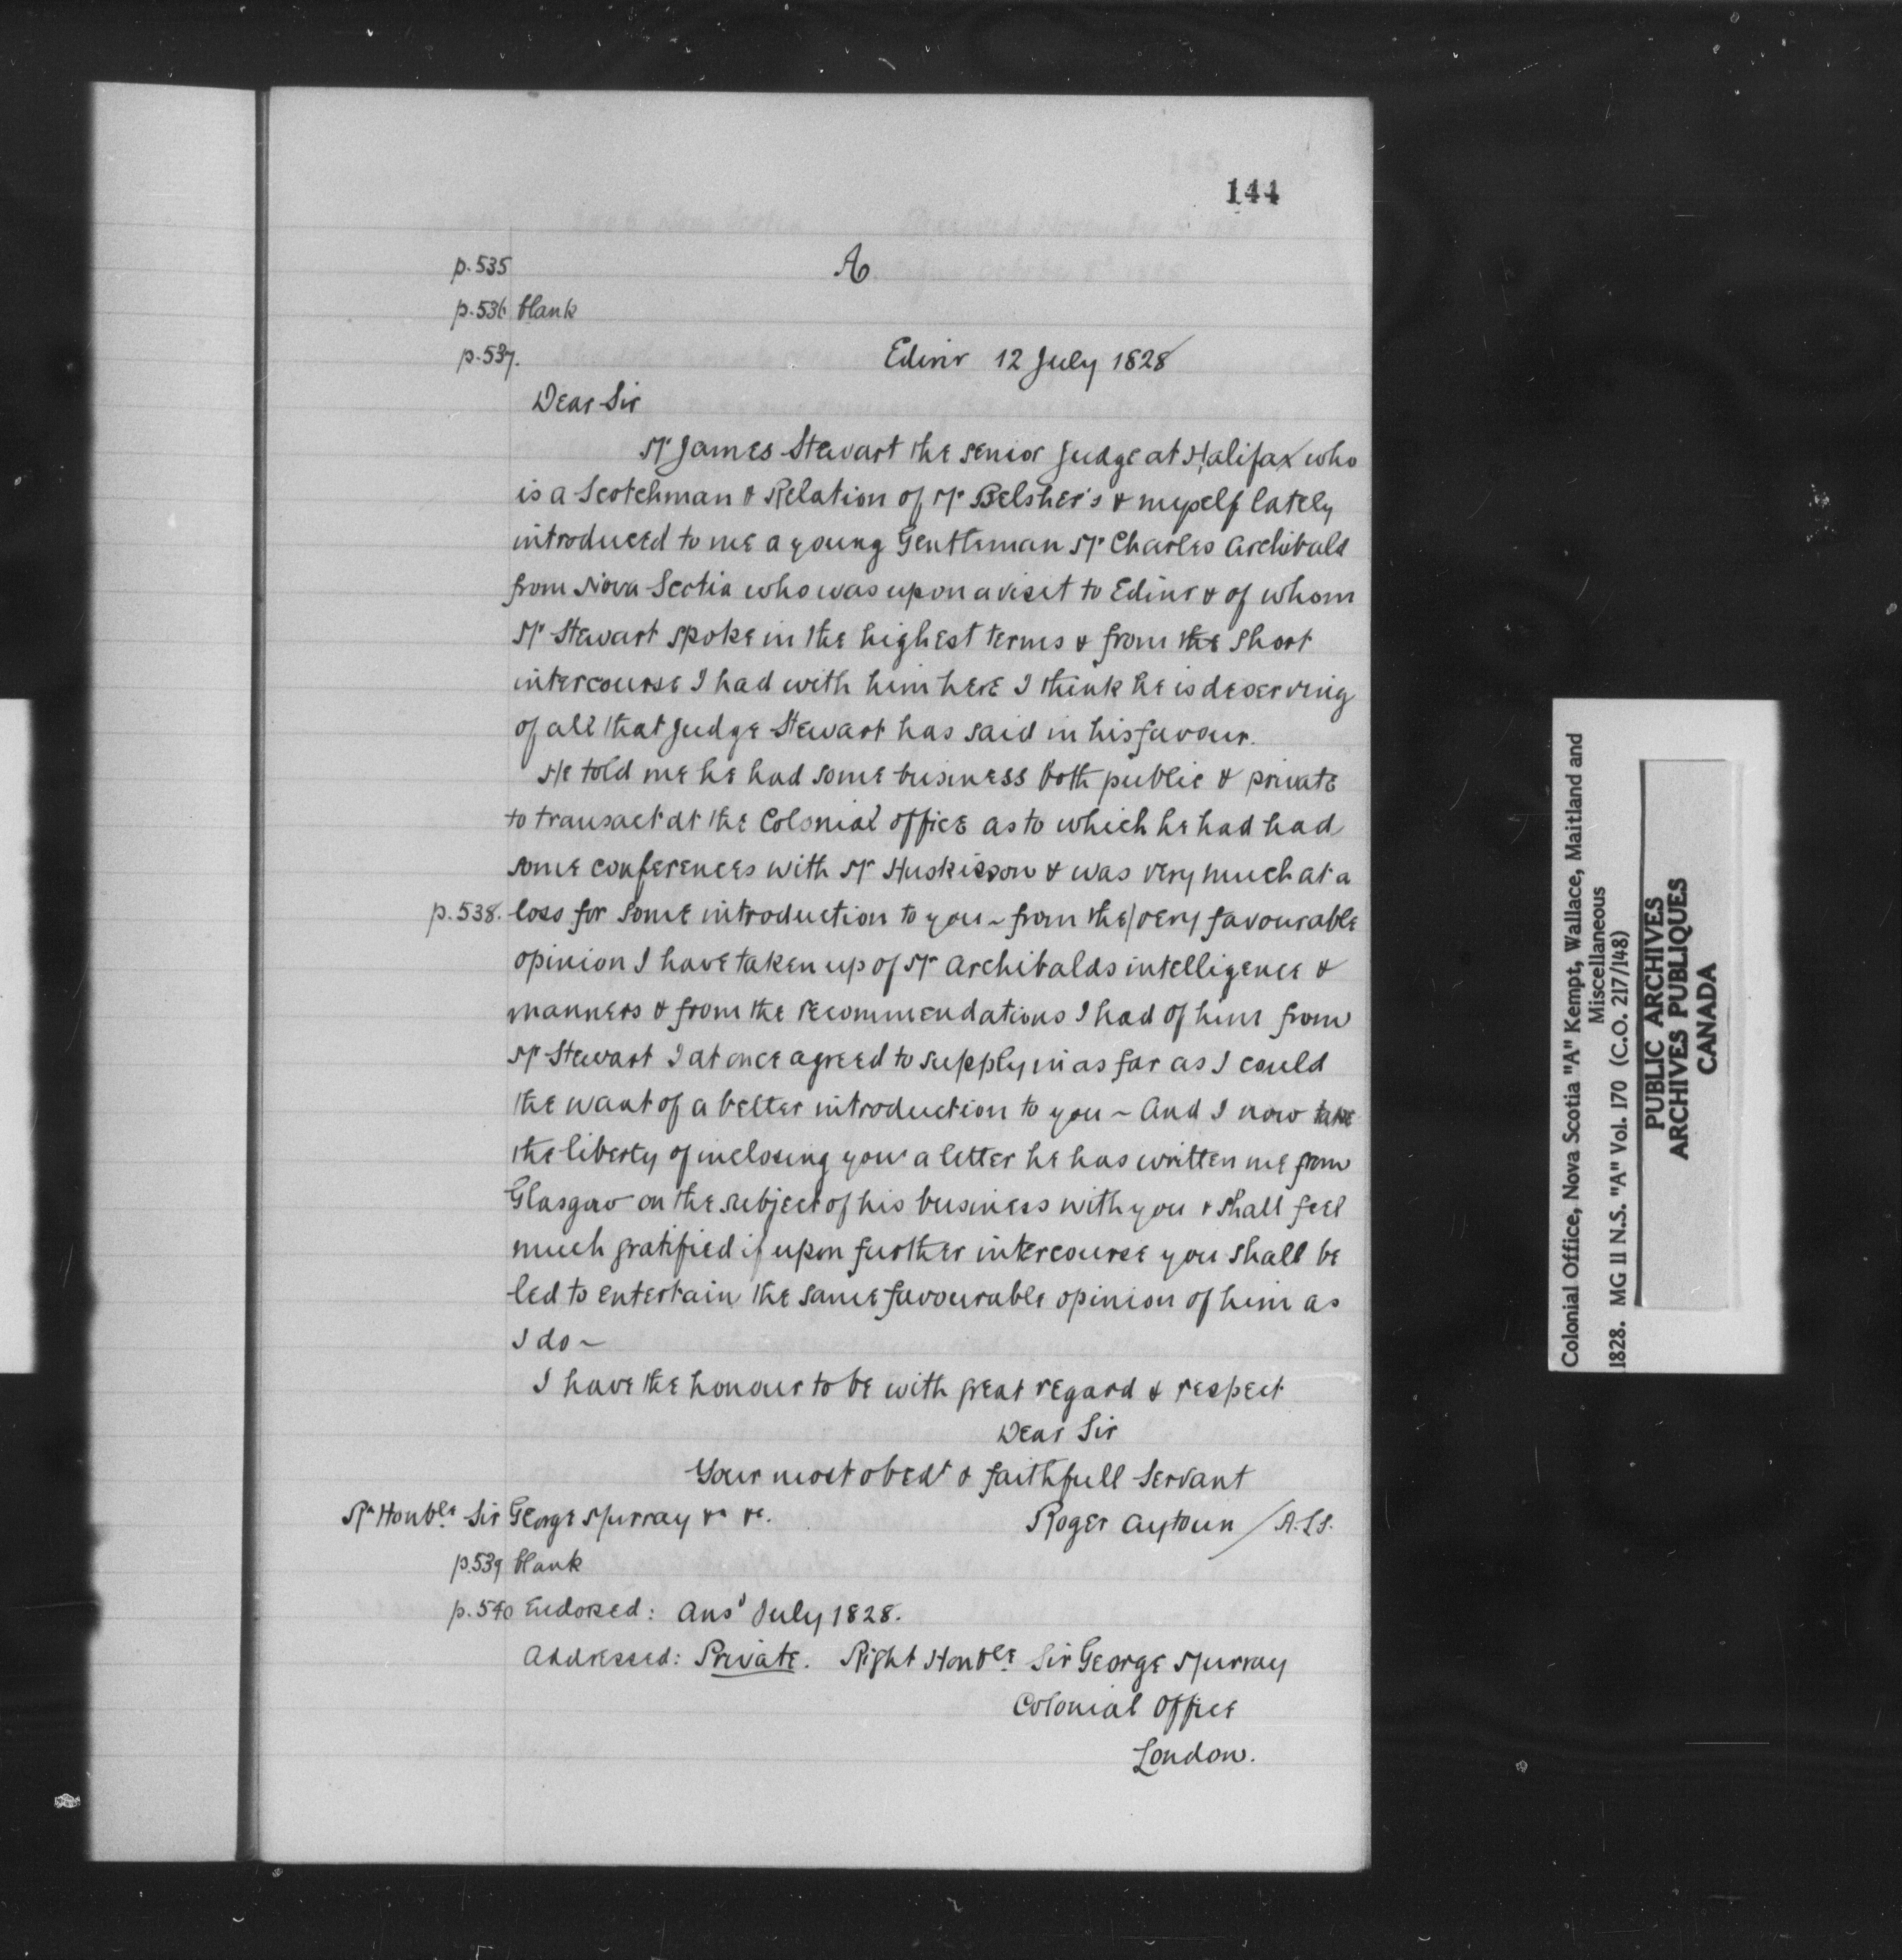 144
p.535 A
p.536 blank
p.537. Edinr 12 July 1828
Dear Sir
Mr James Stewart the senior Judge at Halifax who
is a Scotchman & Relation of Mr Belsher's & myself lately
introduced to me a young Gentleman Mr Charles Archibald
from Nova Scotia who was upon a visit to Edinr & of whom
Mr Stewart spoke in the highest terms & from the short
intercourse I had with him here I think he is deserving
of all that Judge Stewart has said in his favour.
He told me he had some business both public & private
to transact at the Colonial office as to which he had had
some conferences with Mr Huskisson & was very much at a
p.538. loss for some introduction to you ~ from the/very favourable
opinion I have taken up of Mr Archibalds intelligence &
manners & from the recommendations I had of him from
Mr Stewart I at once agreed to supply in as far as I could
the want of a better introduction to you ~ And I now take
the liberty of inclosing you a letter he has written me from
Glasgow on the subject of his business with you & shall feel
much gratified if upon further intercourse you shall be
led to entertain the same favourable opinion of him as
I do ~
I have the honour to be with great regard & respect
Dear Sir
Your most obedt & faithfull Servant
Rt Honble Sir George Murray &c &c. Roger Aytoun / A.L.S.
p.539 blank
p.540 Endorsed: Ansd July 1828.
Addressed: Private. Right Honble Sir George Murray
Colonial Office
London.
Colonial Office, Nova Scotia "A" Kempt, Wallace, Maitland and
Miscellaneous
1828. MG 11 N.S. "A" Vol. 170 (C.O. 217/148)
PUBLIC ARCHIVES
ARCHIVES PUBLIQUES
CANADA